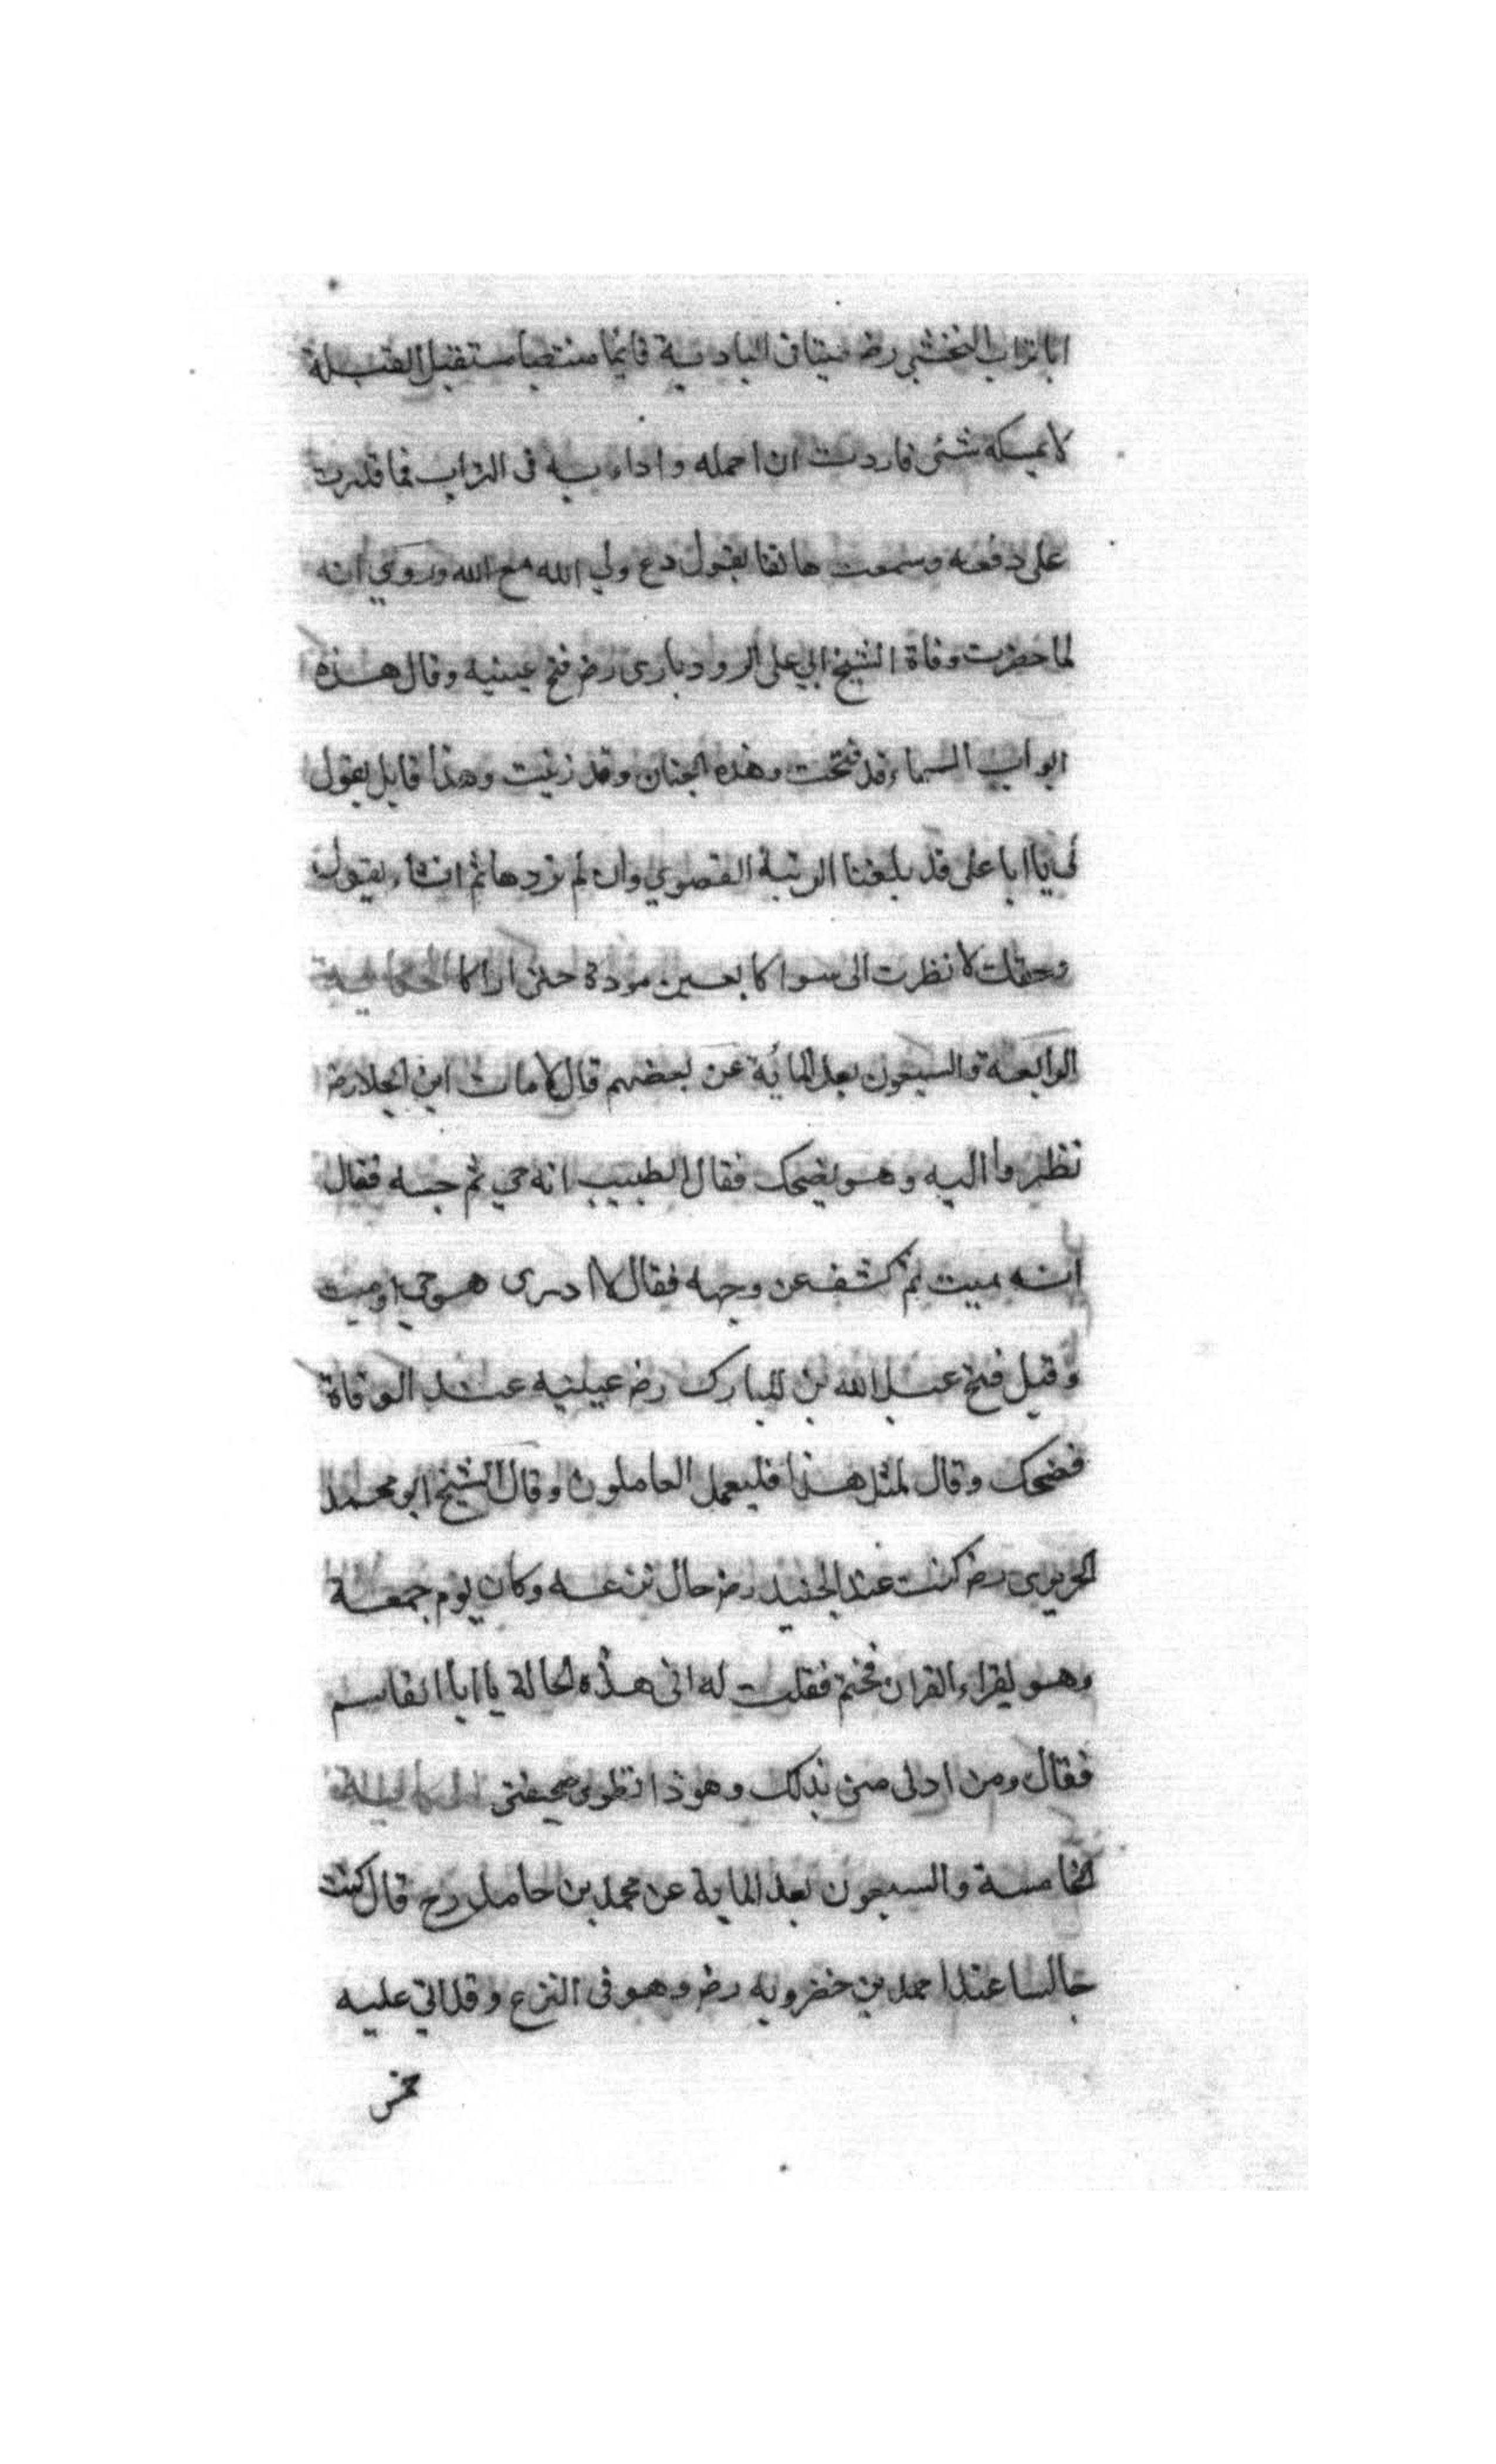 ابا تراب النخشبي رض ميتا فى البادية قائما منتصبا مستقبل القبلة
لا يمسكه شئ فاردت ان احمله و اداريه فى التراب فما قدرت
على دفعه وسمعت هاتفا يقول دع ولي الله مع الله وروي انه
لما حضرت وفاة الشيخ ابي على الرودبارى رض فتح عينيه وقال هذه
ابواب السماء قد فتحت وهذه الجنان وقد زينت وهذا قايل يقول
لى يا ابا على قد بلغنا الرتبة القصوي وان لم تردها ثم انشاء يقول
وحقك لا نظرت الى سواكا بعين مودة حتى اراكا الحكاية
الرابعة والسبعون بعد المائة عن بعضهم قال لما مات ابن الجلا رض
نظروا اليه وهو يضحك فقال الطبيب انه حي ثم جسه فقال
انه ميت ثم كشف عن وجهه فقال لا ادرى هو حي او ميت
وقيل فتح عبد الله بن المبارك رض عينيه عند الوفاة
فضحك وقال لمثل هذا فليعمل العاملون وقال الشيخ ابو محمد
الحريرى رض كنت عند الجنيد رض حال نزعه وكان يوم جمعة
وهو يقراء القران فختم فقلت له افى هذه الحالة يا ابا القاسم
فقال ومن اولى منى بذلك وهو ذا تطوى صحيفتى الحكاية
الخامسة والسبعون بعد الماية عن محمد بن حامد رح قال كنت
جالسا عند احمد بن خضرويه رض وهو فى النزع وقد اتى عليه
خمس